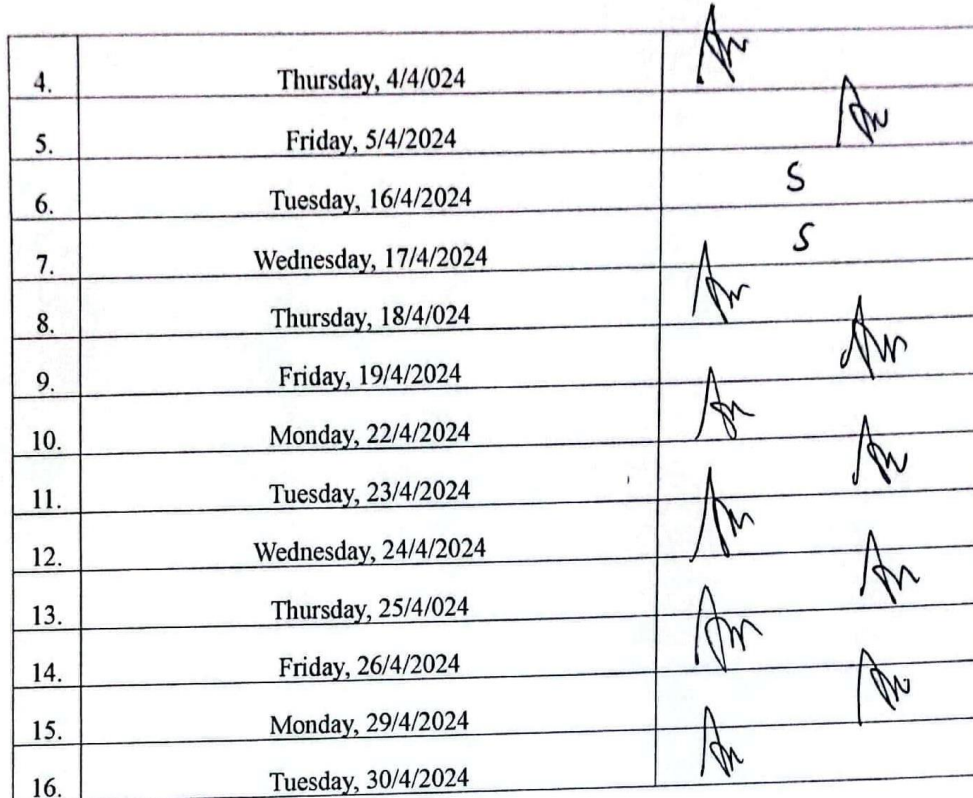 4. Thursday, 4/4/024
5. Friday, 5/4/2024
6. Tuesday, 16/4/2024 S
7. Wednesday, 17/4/2024 S
8. Thursday, 18/4/024
9. Friday, 19/4/2024
10. Monday, 22/4/2024
11. Tuesday, 23/4/2024
12. Wednesday, 24/4/2024
13. Thursday, 25/4/024
14. Friday, 26/4/2024
15. Monday, 29/4/2024
16. Tuesday, 30/4/2024